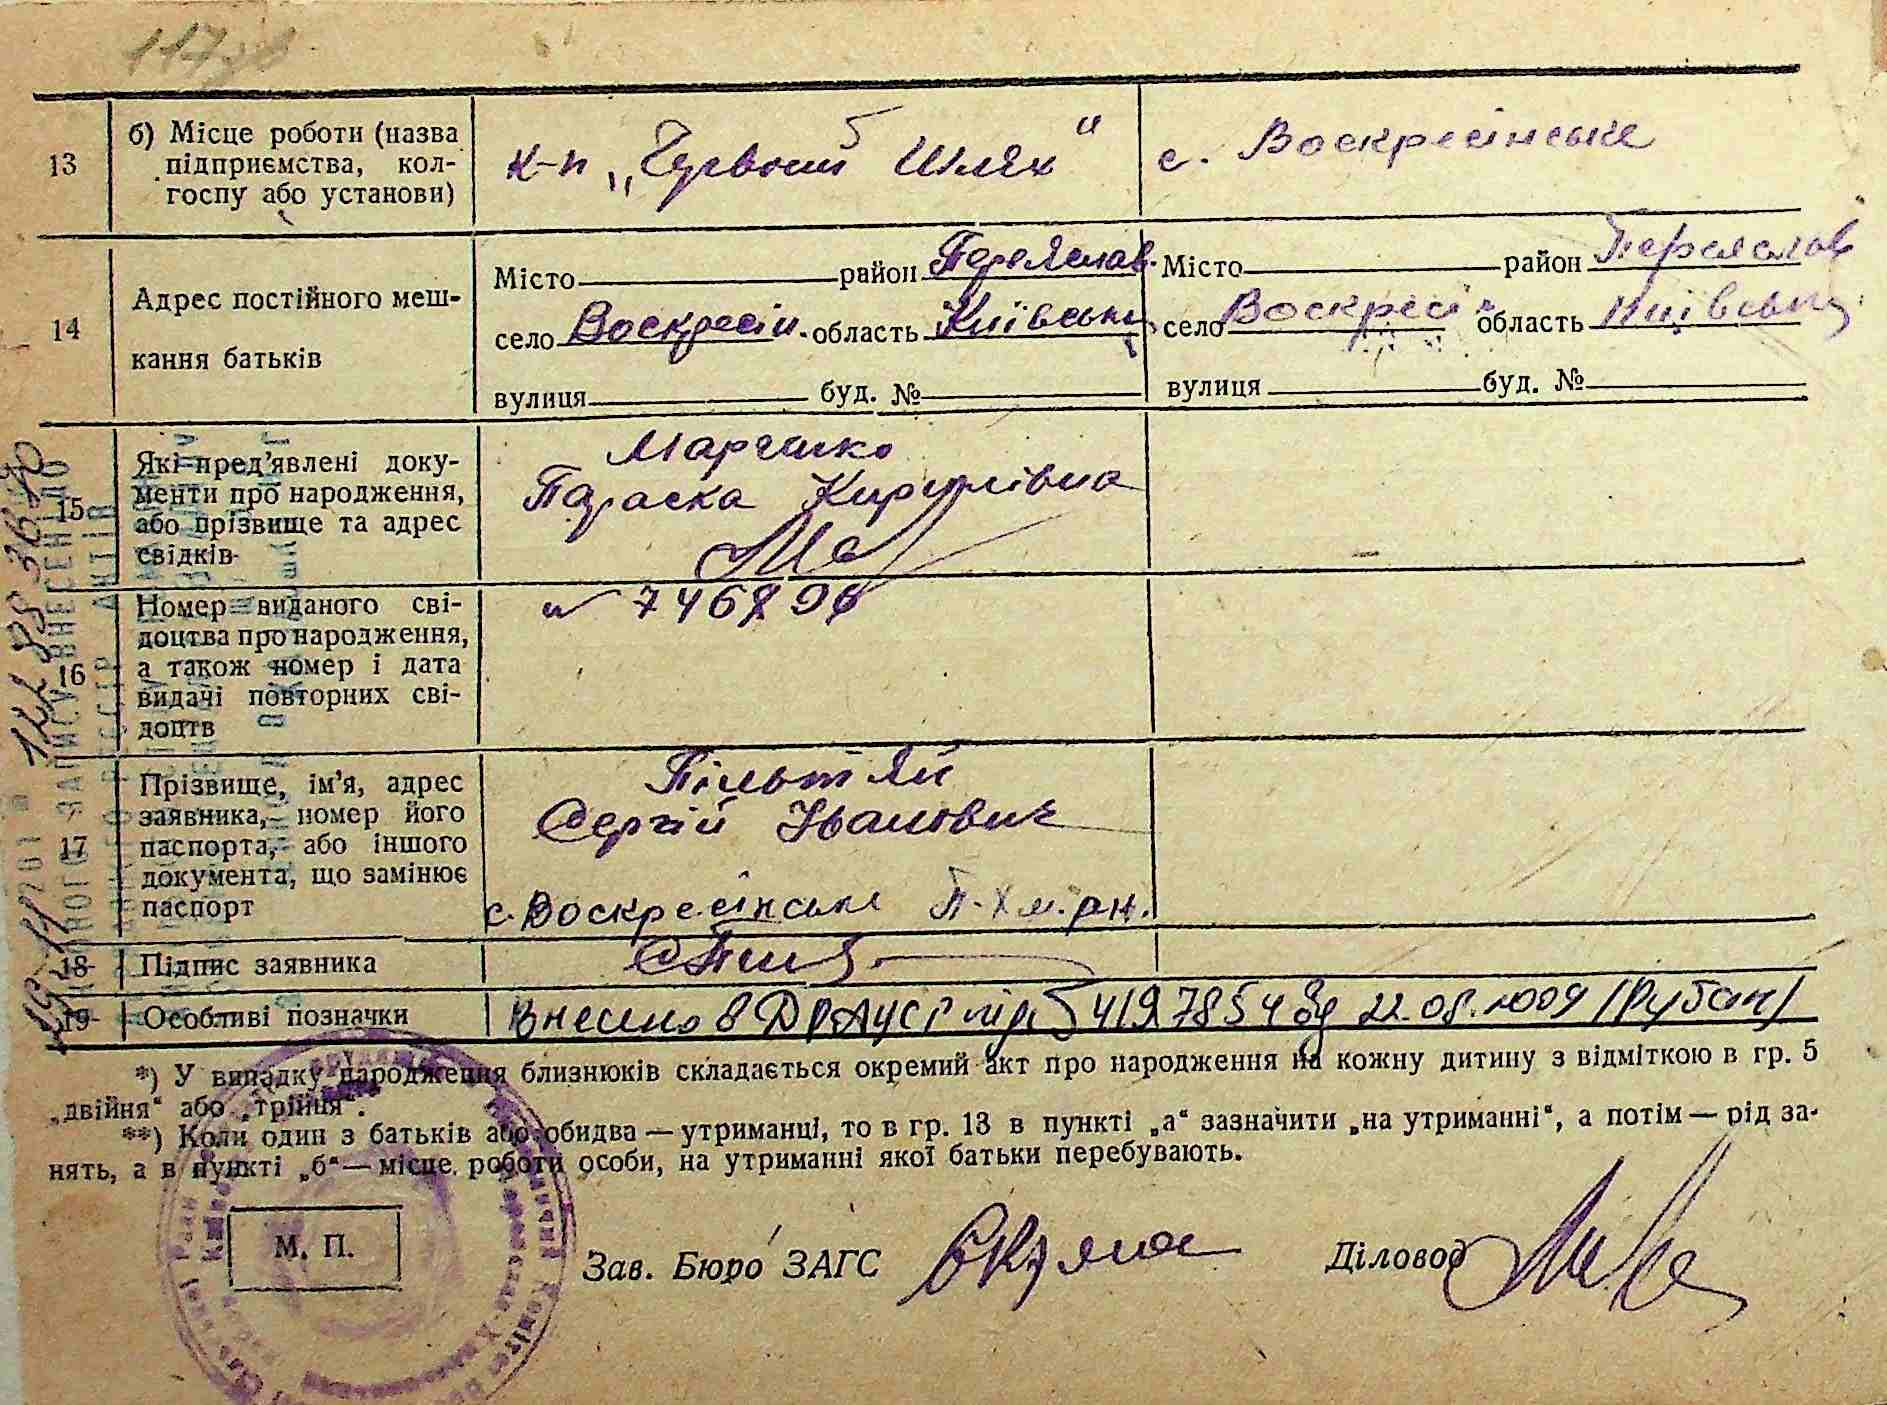 13
б) Місце роботи (назва
підприємства, кол-
госпу або установи)
к-п „Червоний Шлях"
с. Воскресінське
14
Адрес постійного меш-
кання батьків
Місто район Переяслав.
село Воскресін. область Київська
вулиця буд. №
Місто район Переяслав
село Воскресін область Київська
вулиця буд. №
15
Які пред'явлені доку-
менти про народження,
або прізвище та адрес
свідків
Марченко
Параска Кирилівна
16
Номер виданого сві-
доцтва про народження,
а також номер і дата
видачі повторних сві-
доцтв
17
Прізвище, ім'я, адрес
заявника, номер його
паспорта, або іншого
документа, що замінює
паспорт
Пільтяй
Сергій Іванович
с. Воскресінське П-Хм. рн.
18
Підпис заявника
19
Особливі позначки
Внесено в ДРАЦСГ від 22.08.2009 (Рубан)
*) У випадку народження близнюків складається окремий акт про народження на кожну дитину з відміткою в гр. 5
„двійня“ або „трійня“.
**) Коли один з батьків або обидва — утриманці, то в гр. 13 в пункті „а“ зазначити „на утриманні“, а потім — рід за-
нять, а в пункті „б“ — місце роботи особи, на утриманні якої батьки перебувають.
М. П.
Зав. Бюро ЗАГС
Діловод